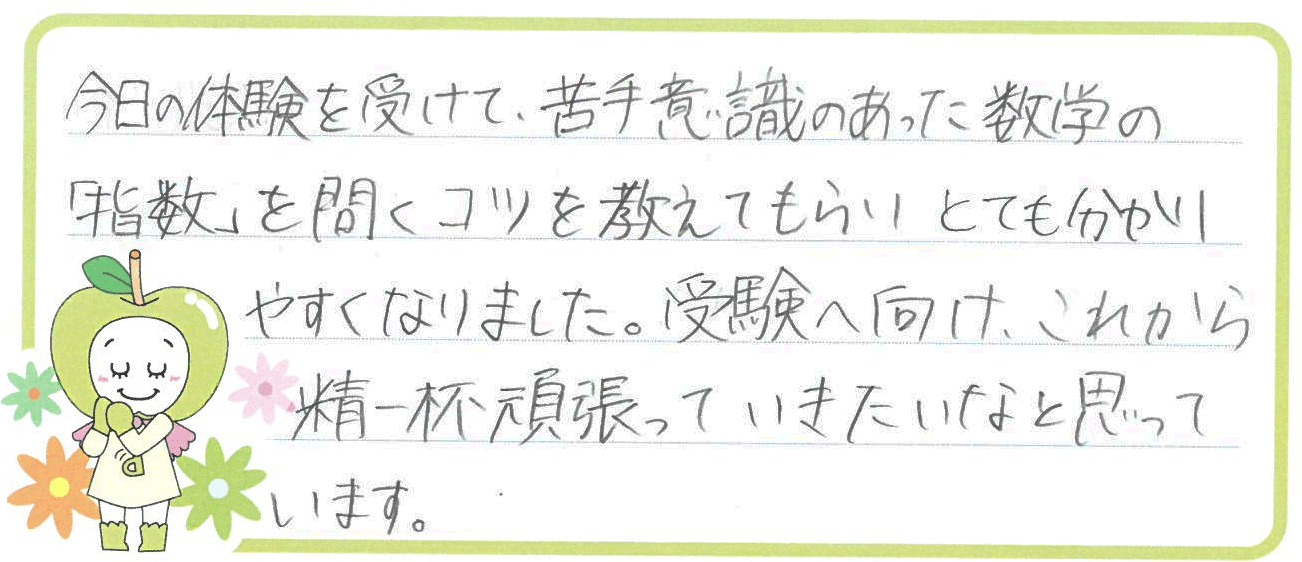 今日の体験を受けて、苦手意識のあった数学の
「指数」を問くコツを教えてもらい とても分かり
やすくなりました。受験へ向け、これから
精一杯頑張っていきたいなと思って
います。